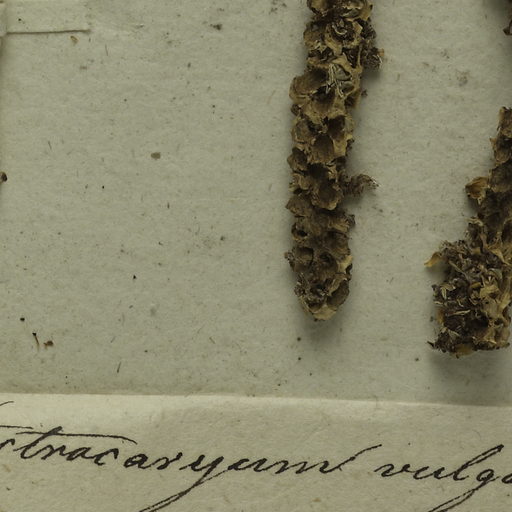 ctrocaryum vulga